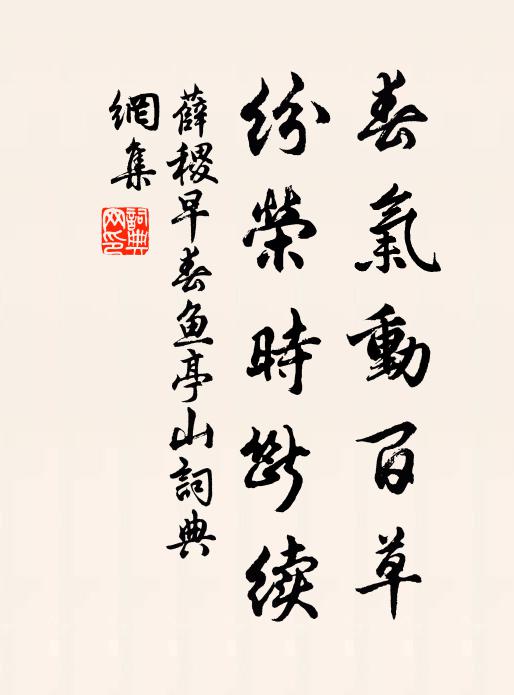 春氣動百草
紛榮時斷續
薛稷早春魚亭山詞典
網集
詞典网印